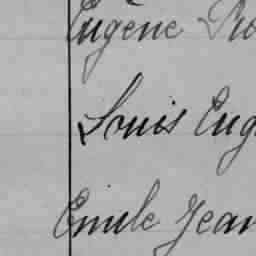 Eugène
Louis Eug
Emile Jean